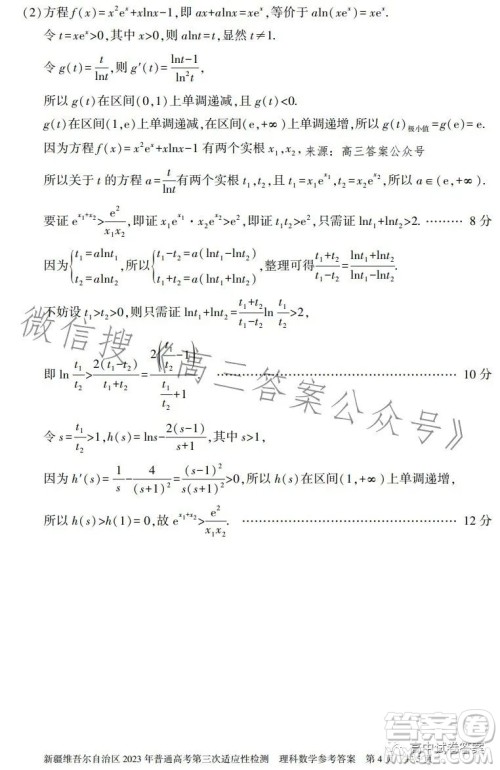 (2)方程f(x)=x²eˣ+xlnx-1,即ax+alnx=xeˣ,等价于aln(xeˣ)=xeˣ.
令t=xeˣ>0,其中x>0,则alnt=t,显然t≠1.
令g(t)=t/lnt,则g′(t)=(lnt-1)/ln²t,
所以g(t)在区间(0,1)上单调递减,且g(t)<0.
g(t)在区间(1,e)上单调递减,在区间(e,+∞)上单调递增,所以g(t)极小值=g(e)=e.
因为方程f(x)=x²eˣ+xlnx-1有两个实根x₁,x₂, 来源：高三答案公众号
所以关于t的方程a=t/lnt有两个实根t₁,t₂,且t₁=x₁e^x₁,t₂=x₂e^x₂,所以a∈(e,+∞).
要证e^(x₁+x₂)>e²/(x₁x₂),即证x₁e^x₁·x₂e^x₂>e²,即证t₁t₂>e²,只需证lnt₁+lnt₂>2. ……… 8分
因为{t₁=alnt₁, t₂=alnt₂,所以{t₁-t₂=a(lnt₁-lnt₂) t₁+t₂=a(lnt₁+lnt₂),整理可得(t₁+t₂)/(t₁-t₂)=(lnt₁+lnt₂)/(lnt₁-lnt₂).
不妨设t₁>t₂>0,则只需证lnt₁+lnt₂=(t₁+t₂)/(t₁-t₂)ln t₁/t₂>2,
即ln t₁/t₂>2(t₁-t₂)/(t₁+t₂)=2(t₁/t₂-1)/(t₁/t₂+1) ……………………… 10分
令s=t₁/t₂>1,h(s)=lns-2(s-1)/(s+1),其中s>1,
因为h′(s)=1/s-4/(s+1)²=(s-1)²/s(s+1)²>0,所以h(s)在区间(1,+∞)上单调递增,
所以h(s)>h(1)=0,故e^(x₁+x₂)>e²/(x₁x₂). ……………………… 12分
微信搜《高三答案公众号》
新疆维吾尔自治区2023年普通高考第三次适应性检测 理科数学参考答案 第4
高中试卷答案